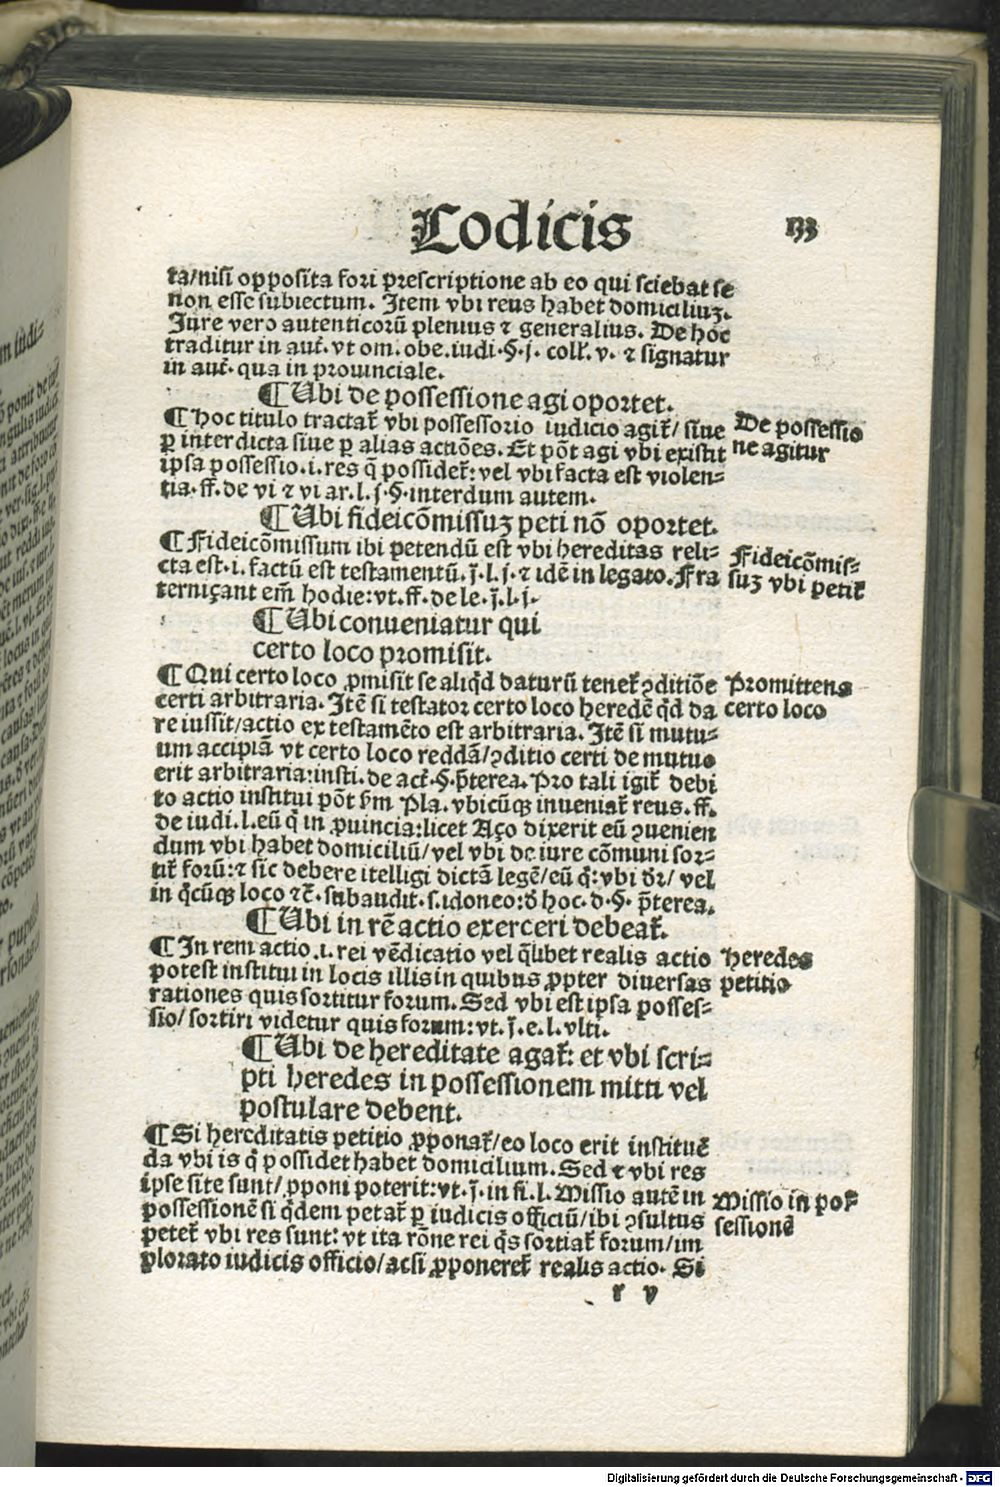 Codicis 133
ta/nisi opposita fori prescriptione ab eo qui sciebat se
non esse subiectum. Item vbi reus habet domiciliuꝫ.
Iure vero autenticorū plenius ⁊ generalius. De hoc
traditur in aut̃. vt om. obe. iudi. §. j. coll̃. v. ⁊ signatur
in aut̃. qua in prouinciale.
¶ Ubi de possessione agi oportet.
¶ Hoc titulo tractat̃ vbi possessorio iudicio agit̃/ siue
ꝑ interdicta siue ꝑ alias actiões. Et põt agi vbi existit
ipsa possessio. i. res q̄ possidet̃: vel vbi facta est violen-
tia. ff. de vi ⁊ vi ar. l. j. §. interdum autem.
De possessio
ne agitur
¶ Ubi fideicõmissuꝫ peti nõ oportet.
¶ Fideicõmissum ibi petendū est vbi hereditas reli-
cta est. i. factū est testamentū. j̄. l. j. ⁊ idē in legato. Fra
terniçant em̃ hodie: vt. ff. de le. j̄. l. j.
Fideicõmis-
suꝫ vbi petit̃
¶ Ubi conueniatur qui
certo loco promisit.
¶ Qui certo loco ꝓmisit se aliq̇d daturū tenet̃ ↄditiõe
certi arbitraria. Itē si testator certo loco heredē q̇d da
re iussit/actio ex testamēto est arbitraria. Itē si mutu-
um accipiā vt certo loco reddā/ↄditio certi de mutuo
erit arbitraria: insti. de act̃. §. p̄terea. Pro tali igit̃ debi
to actio institui põt ẜm Pla. vbicūqꝫ inueniat̃ reus. ff.
de iudi. l. eū q̇ in ꝓuincia: licet Aço dixerit eū ↄuenien
dum vbi habet domiciliū/ vel vbi de iure cõmuni sor-
tit̃ forū: ⁊ sic debere itelligi dictā legē/ eū q̇: vbi dr̃/ vel
in q̇cūqꝫ loco ⁊c̃. subaudit. s. idoneo: ð hoc. d. §. p̄terea.
Promittens
certo loco
¶ Ubi in rē actio exerceri debeat̃.
¶ In rem actio. i. rei vēdicatio vel q̄libet realis actio
potest institui in locis illis in quibus ꝓpter diuersas
rationes quis sortitur forum. Sed vbi est ipsa posses-
sio/ sortiri videtur quis forum: vt. j̄. e. l. vlti.
Heredes
petitio
¶ Ubi de hereditate agat̃: et vbi scri-
pti heredes in possessionem mitti vel
postulare debent.
¶ Si hereditatis petitio ꝓponat̃/ eo loco erit instituē
da vbi is q̇ possidet habet domicilium. Sed ⁊ vbi res
ipse site sunt/ ꝓponi poterit: vt. j̄. in fi. l. Missio autē in
possessionē si q̇dem petat̃ ꝑ iudicis officiū/ ibi ↄsultus
petet̃ vbi res sunt: vt ita rõne rei q̇s sortiat̃ forum/ im
plorato iudicis officio/ acsi ꝓponeret̃ realis actio. Si
Missio in pos
sessionē
r v
Digitalisierung gefördert durch die Deutsche Forschungsgemeinschaft - DFG